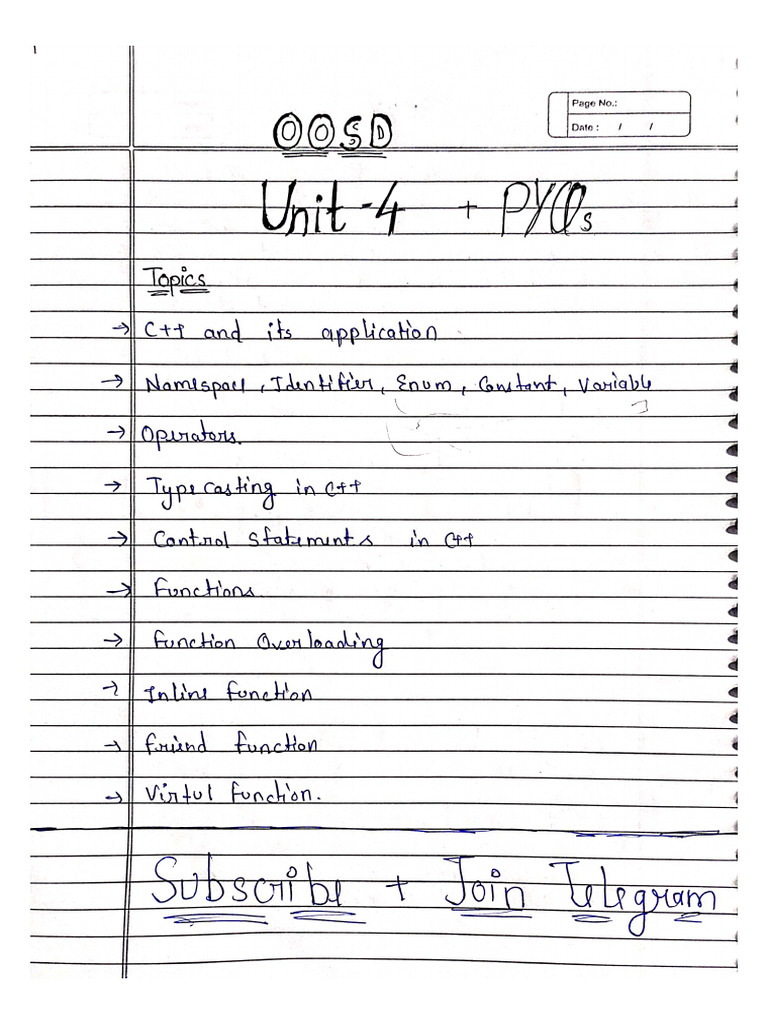 Page No.:
Date : / /
OOSD
Unit-4 + PYQs
Topics
→ C++ and its application.
→ Namespace, Identifier, Enum, Constant, Variable
→ Operators.
→ Typecasting in C++
→ Control Statements in C++
→ Functions.
→ Function Overloading
→ Inline function
→ friend function
→ Virtul function.
Subscribe + Join Telegram